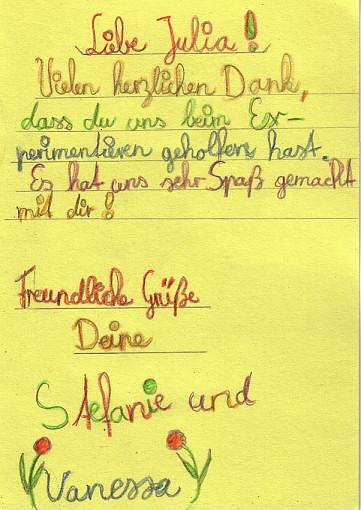 Liebe Julia!
Vielen herzlichen Dank,
dass du uns beim Ex-
perimentieren geholfen hast.
Es hat uns sehr Spaß gemacht
mit dir!
Freundliche Grüße
Deine
Stefanie und
Vanessa